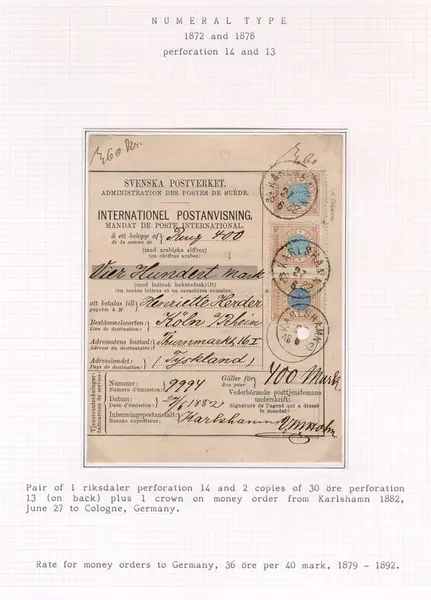 NUMERAL TYPE
1872 and 1878
perforation 14 and 13
360 kr.
360
SVENSKA POSTVERKET.
ADMINISTRATION DES POSTES DE SUÈDE.
INTERNATIONEL POSTANVISNING.
MANDAT DE POSTE INTERNATIONAL.
å ett belopp af
de la somme de
400
(med arabiska siffror)
(en chiffres arabes)
Vier Hundert Mark
(med latinsk bokstafsskrift)
(en toutes lettres et en caractères romains)
att betalas till
payable à M
Henriette Herder
Bestämmelseorten:
Lieu de destination:
Köln a/Rhein
Adressatens bostad:
Adresse du destinataire:
Thurnmarkt, 16 I
Adresslandet:
Pays de destination:
(Tyskland)
Tjensteanteckningar:
Indications de service:
Nummer:
Numéro d'émission:
9994
Gäller för:
Bon pour:
400 Mark
Datum:
Date d'émission:
27/6 1882
Vederbörande posttjenstemans
underskrift.
Signature de l'agent qui a dressé
le mandat:
Inlemningspostanstalt:
Bureau expéditeur:
Karlshamn
KARLSHAMN
27
6
KARLSHAMN
27
6
KARLSHAMN
6
Pair of 1 riksdaler perforation 14 and 2 copies of 30 öre perforation
13 (on back) plus 1 crown on money order from Karlshamn 1882,
June 27 to Cologne, Germany.
Rate for money orders to Germany, 36 öre per 40 mark, 1879 - 1892.